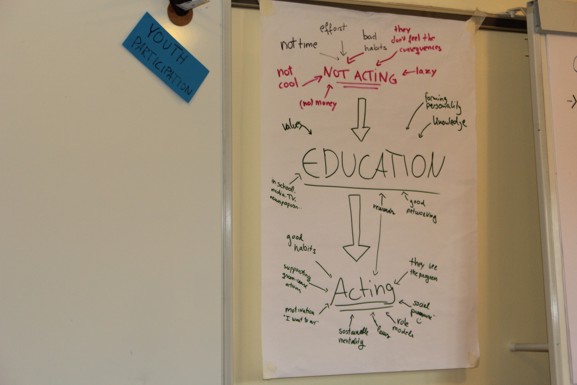 YOUTH
PARTICIPATION
effort
not time
bad
habits
they
don't feel the
consequences
NOT ACTING
not
cool
lazy
(no) money
forming
personality
values
knowledge
EDUCATION
in school,
media TV,
newspaper
rewards
good
networking
good
habits
they see
the progress
supporting
actions
Acting
motivation
"I want to act"
social
pressure
sustainable
mentality
laws
role
models